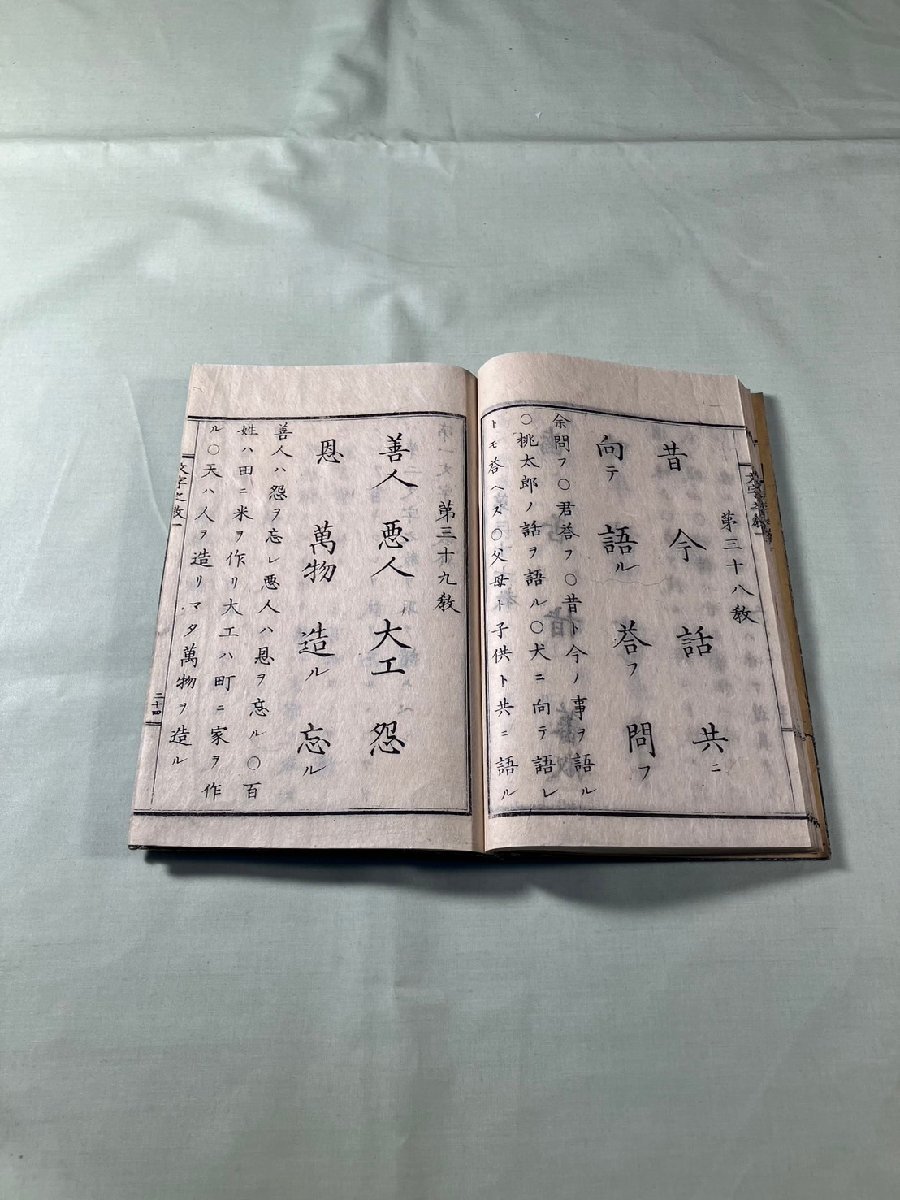 第三十八教
昔 今 話 共ニ
向テ 語ル 荅フ 問フ
余問フ〇君荅フ〇昔ト今ノ事ヲ語ル
〇桃太郎ノ話ヲ語ル〇犬ニ向テ語レ
トモ荅ヘズ〇父母ト子供ト共ニ語ル
第三十九教
善人 惡人 大工 怨
恩 萬物 造ル 忘ル
善人ハ怨ヲ忘レ惡人ハ恩ヲ忘ル〇百
姓ハ田ニ米ヲ作リ大工ハ町ニ家ヲ作
ル〇天ハ人ヲ造リマタ萬物ヲ造ル
文字之教一
二十四